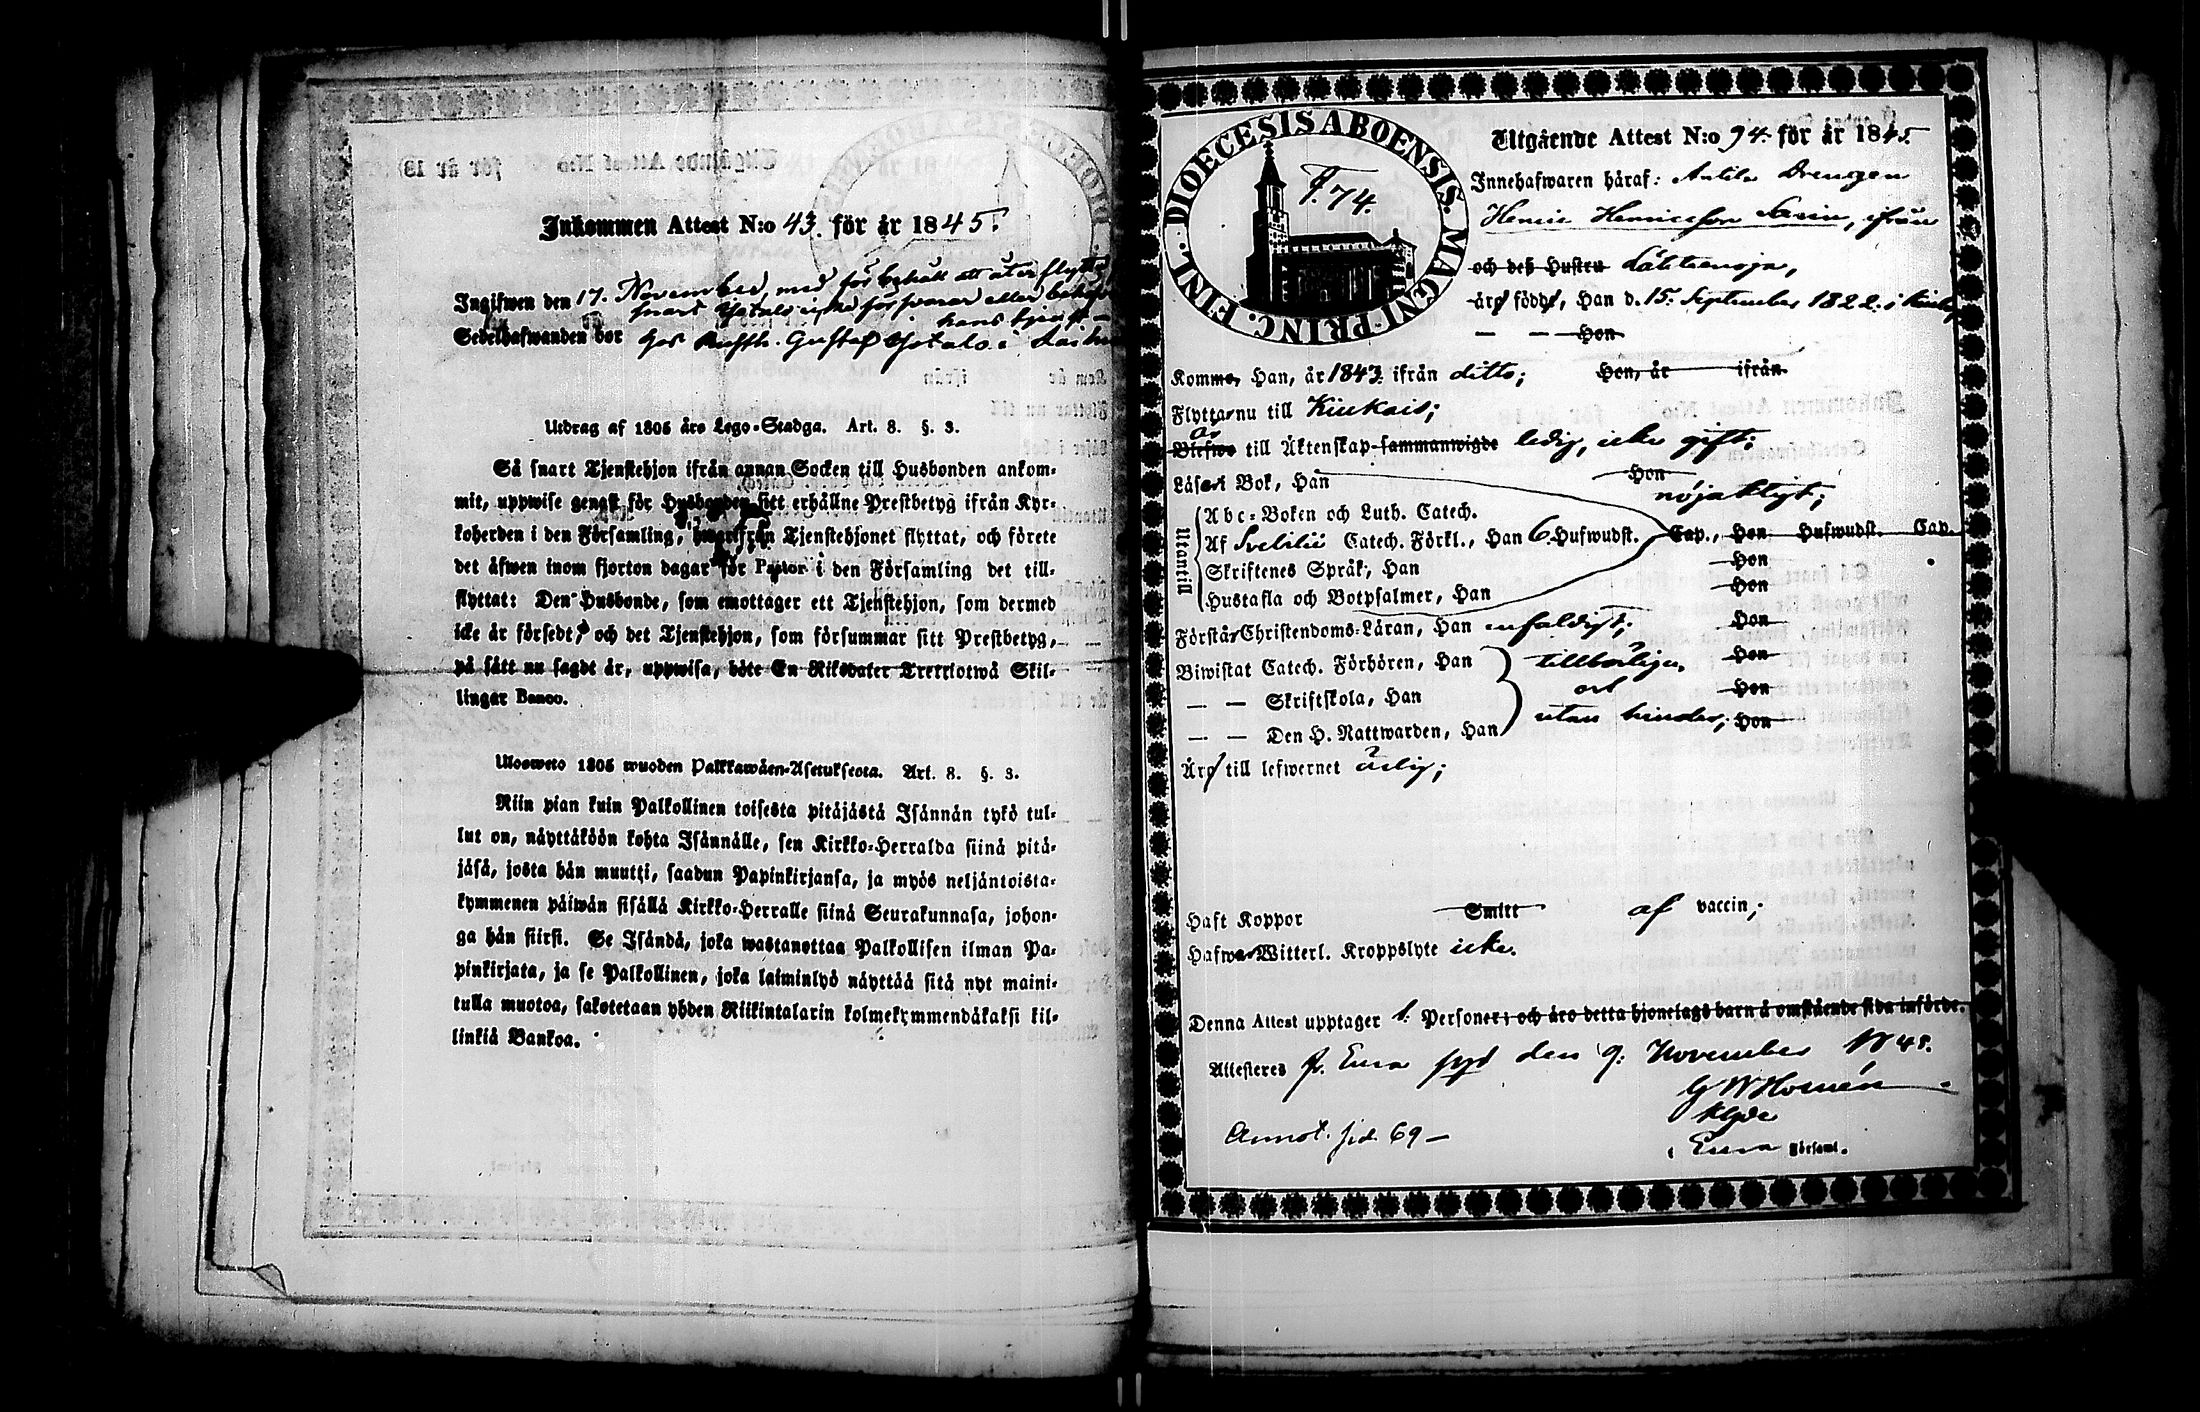 Inkommen Attest N:o 43. för år 1845.
Ingifwen den 17. November, med förbehåll att återflytta
snart Ylitalo icke försvarar eller behöfver
hans tjenst
Sedelhafwanden bor hos Rusth. Gustaf Ylitalo i
Utdrag af 1805 års Lego-Stadga. Art. 8. §. 3.
Så snart Tjenstehjon ifrån annan Socken till Husbonden ankom-
mit, uppwise genast för Husbonden sitt erhållne Prestbetyg ifrån Kyr-
koherden i den Församling, hwarifrån Tjenstehjonet flyttat, och förete
det äfwen inom fjorton dagar för Pastor i den Församling det till-
flyttat: Den Husbonde, som emottager ett Tjenstehjon, som dermed
icke är försedt, och det Tjenstehjon, som försummar sitt Prestbetyg,
på sätt nu sagdt är, uppwisa, böte En Riksdaler Trettiotwå Skil-
lingar Banco.
Ulosweto 1805 wuoden Palkkawäen-Asetuksesta. Art. 8. §. 3.
Niin pian kuin Palkollinen toisesta pitäjästä Isännän tykö tul-
lut on, näyttäköön kohta Isännälle, sen Kirkko-Herralda siinä pitä-
jäsä, josta hän muutti, saadun Papinkirjansa, ja myös neljäntoista-
kymmenen päiwän sisällä Kirkko-Herralle siinä Seurakunnasa, johon-
ga hän siirsi. Se Isändä, joka wastanottaa Palkollisen ilman Pa-
pinkirjata, ja se Palkollinen, joka laiminlyö näyttää sitä nyt maini-
tulla muotoa, sakotetaan yhden Riikintalarin kolmekymmendäkaksi kil-
lingiä Bankoa.
DIOECESIS ABOENSIS. MAGNI PRINC. FINL.
T. 74.
Utgående Attest N:o 94. för år 1845.
Innehafwaren häraf: Antila Drengen
Henric Henricsson Sarin, ifrån
och deß Hustru Lähteenoja,
är född, Han d. 15. September 1822. i
— — Hon
Komme, Han, år 1843. ifrån ditto; Hon, år ifrån
Flyttar nu till Kiukais;
är
Blefwo till Äktenskap sammanwigde ledig, icke gift;
Läser i Bok, Han Hon
nöjaktigt;
Utantill
Abc-Boken och Luth. Catech.
Af Svebilii Catech. Förkl., Han 6. Hufwudst. Cap., Hon Hufwudst. Cap.
Skriftenes Språk, Han Hon
Hustafla och Botpsalmer, Han Hon
Förstår Christendoms-Läran, Han enfaldigt; Hon
Biwistat Catech. Förhören, Han tillbörligen Hon
— — Skriftskola, Han och Hon
— — Den H. Nattwarden, Han utan hinder; Hon
Är till lefwernet ärlig;
Haft Koppor Smitt af vaccin;
Hafwer Witterl. Kroppslyte icke.
Denna Attest upptager 1. Personer; och äro detta hjonelags barn å omstående sida införde.
Attesteres fr. Eura den 9. November 1845.
G W Homén
i Eura Församl.
Annot. sid. 69 —